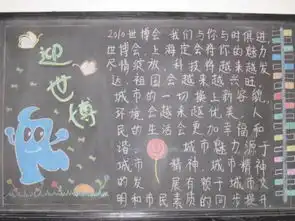 迎世博
2010世博会,我们与你与时俱进
世博会,上海定会将你的魅力
尽情绽放,科技将越来越发
达,祖国会越来越兴旺,
城市的一切换上新容貌,
环境会越来越优美,人
民的生活会更加幸福和
谐。城市魅力源于
城市精神,城市精神
的发展有赖于城市文
明和市民素质的同步提升